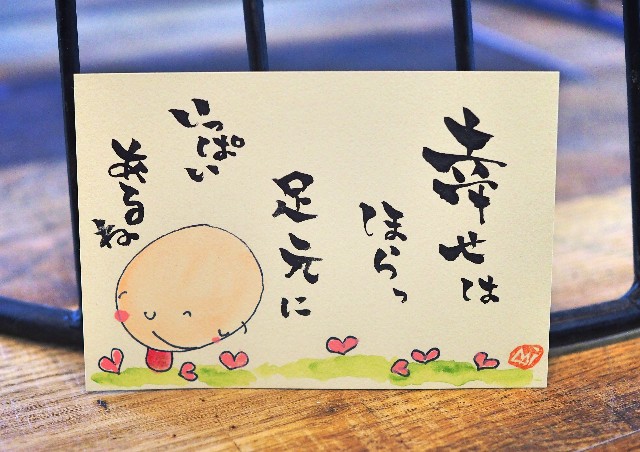 幸せは
ほらっ
足元に
いっぱい
あるね